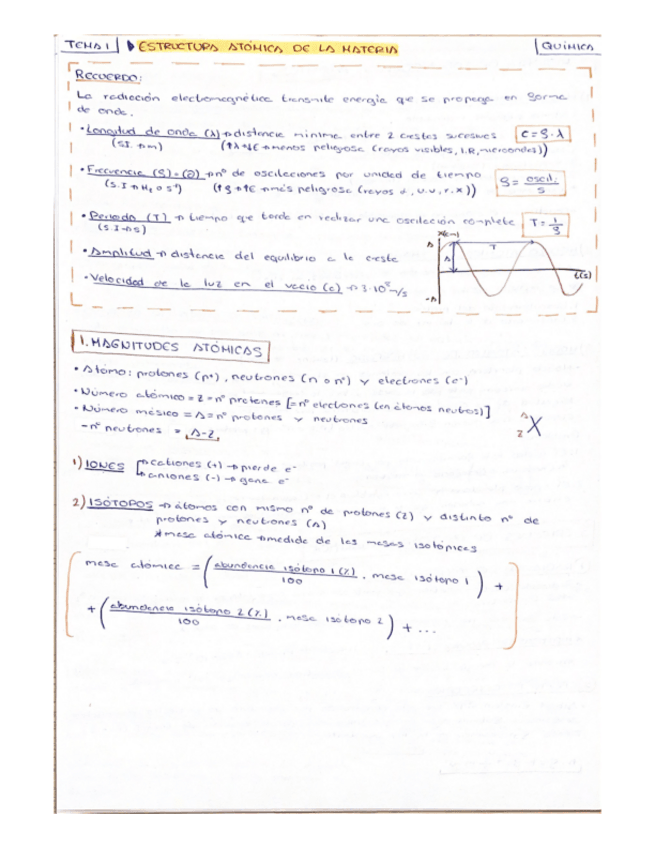 TEMA 1 ▶ ESTRUCTURA ATÓMICA DE LA MATERIA QUÍMICA
RECUERDO:
La radiación electromagnética transmite energía que se propaga en forma
de onda.
• Longitud de onda (λ) → distancia mínima entre 2 crestas sucesivas c = f · λ
(S.I. → m) (↑λ → ↓E → menos peligrosa (rayos visibles, I.R, microondas))
• Frecuencia (f) = (ν) → nº de oscilaciones por unidad de tiempo f = oscil. / s
(S.I → Hz o s⁻¹) (↑f → ↑E → más peligrosa (rayos α, u.v, r.x))
• Periodo (T) → tiempo que tarda en realizar una oscilación completa T = 1/f
(S.I → s)
x(m)
A T
• Amplitud → distancia del equilibrio a la cresta A
t(s)
• Velocidad de la luz en el vacío (c) → 3·10⁸ m/s
-A
1. MAGNITUDES ATÓMICAS
• Átomo: protones (p⁺), neutrones (n o n⁰) y electrones (e⁻)
• Número atómico = Z = nº protones [= nº electrones (en átomos neutros)]
• Número másico = A = nº protones y neutrones A Z X
- nº neutrones = A-Z
1) IONES → cationes (+) → pierde e⁻
→ aniones (-) → gana e⁻
2) ISÓTOPOS → átomos con mismo nº de protones (Z) y distinto nº de
protones y neutrones (A)
* masa atómica → medida de las masas isotópicas
masa atómica = ( abundancia isótopo 1 (%) / 100 · masa isótopo 1 ) +
+ ( abundancia isótopo 2 (%) / 100 · masa isótopo 2 ) + ...